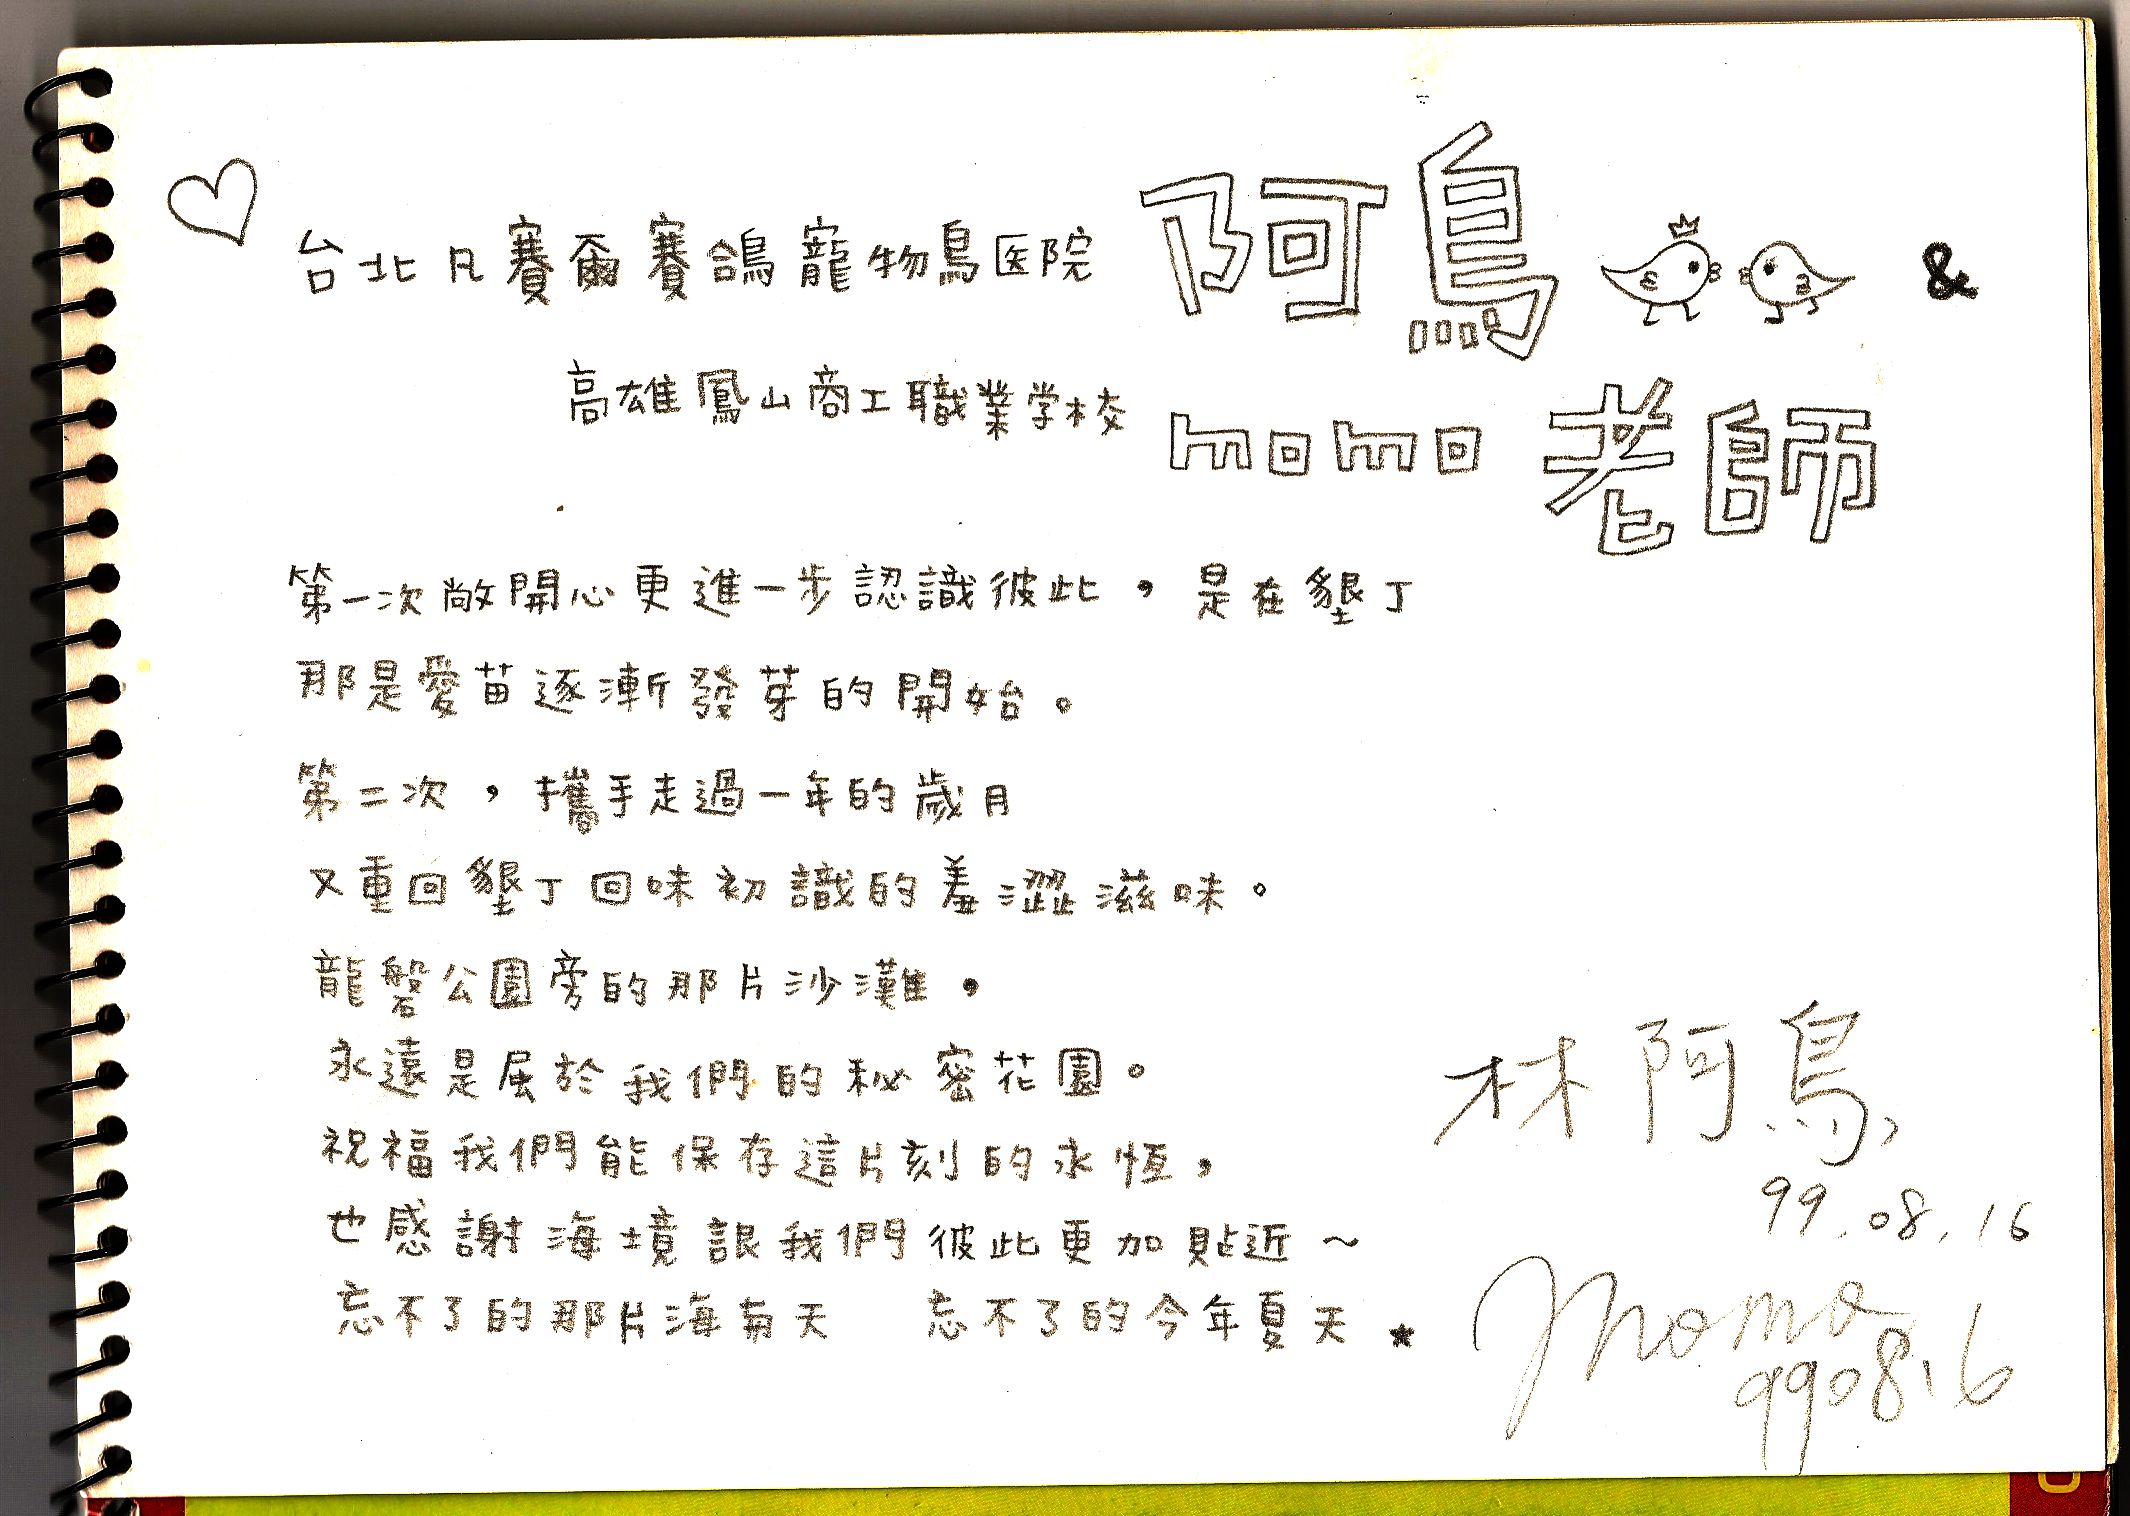 台北凡賽爾賽鴿寵物鳥医院 阿鳥 &
高雄鳳山商工職業学校 momo 老師
第一次敞開心更進一步認識彼此，是在墾丁
那是愛苗逐漸發芽的開始。
第二次，攜手走過一年的歲月
又重回墾丁回味初識的羞澀滋味。
龍磐公園旁的那片沙灘，
永遠是屬於我們的秘密花園。
祝福我們能保存這片刻的永恆，
也感謝海境讓我們彼此更加貼近～
忘不了的那片海有天 忘不了的今年夏天★
林阿鳥
99.08.16
momo
990816